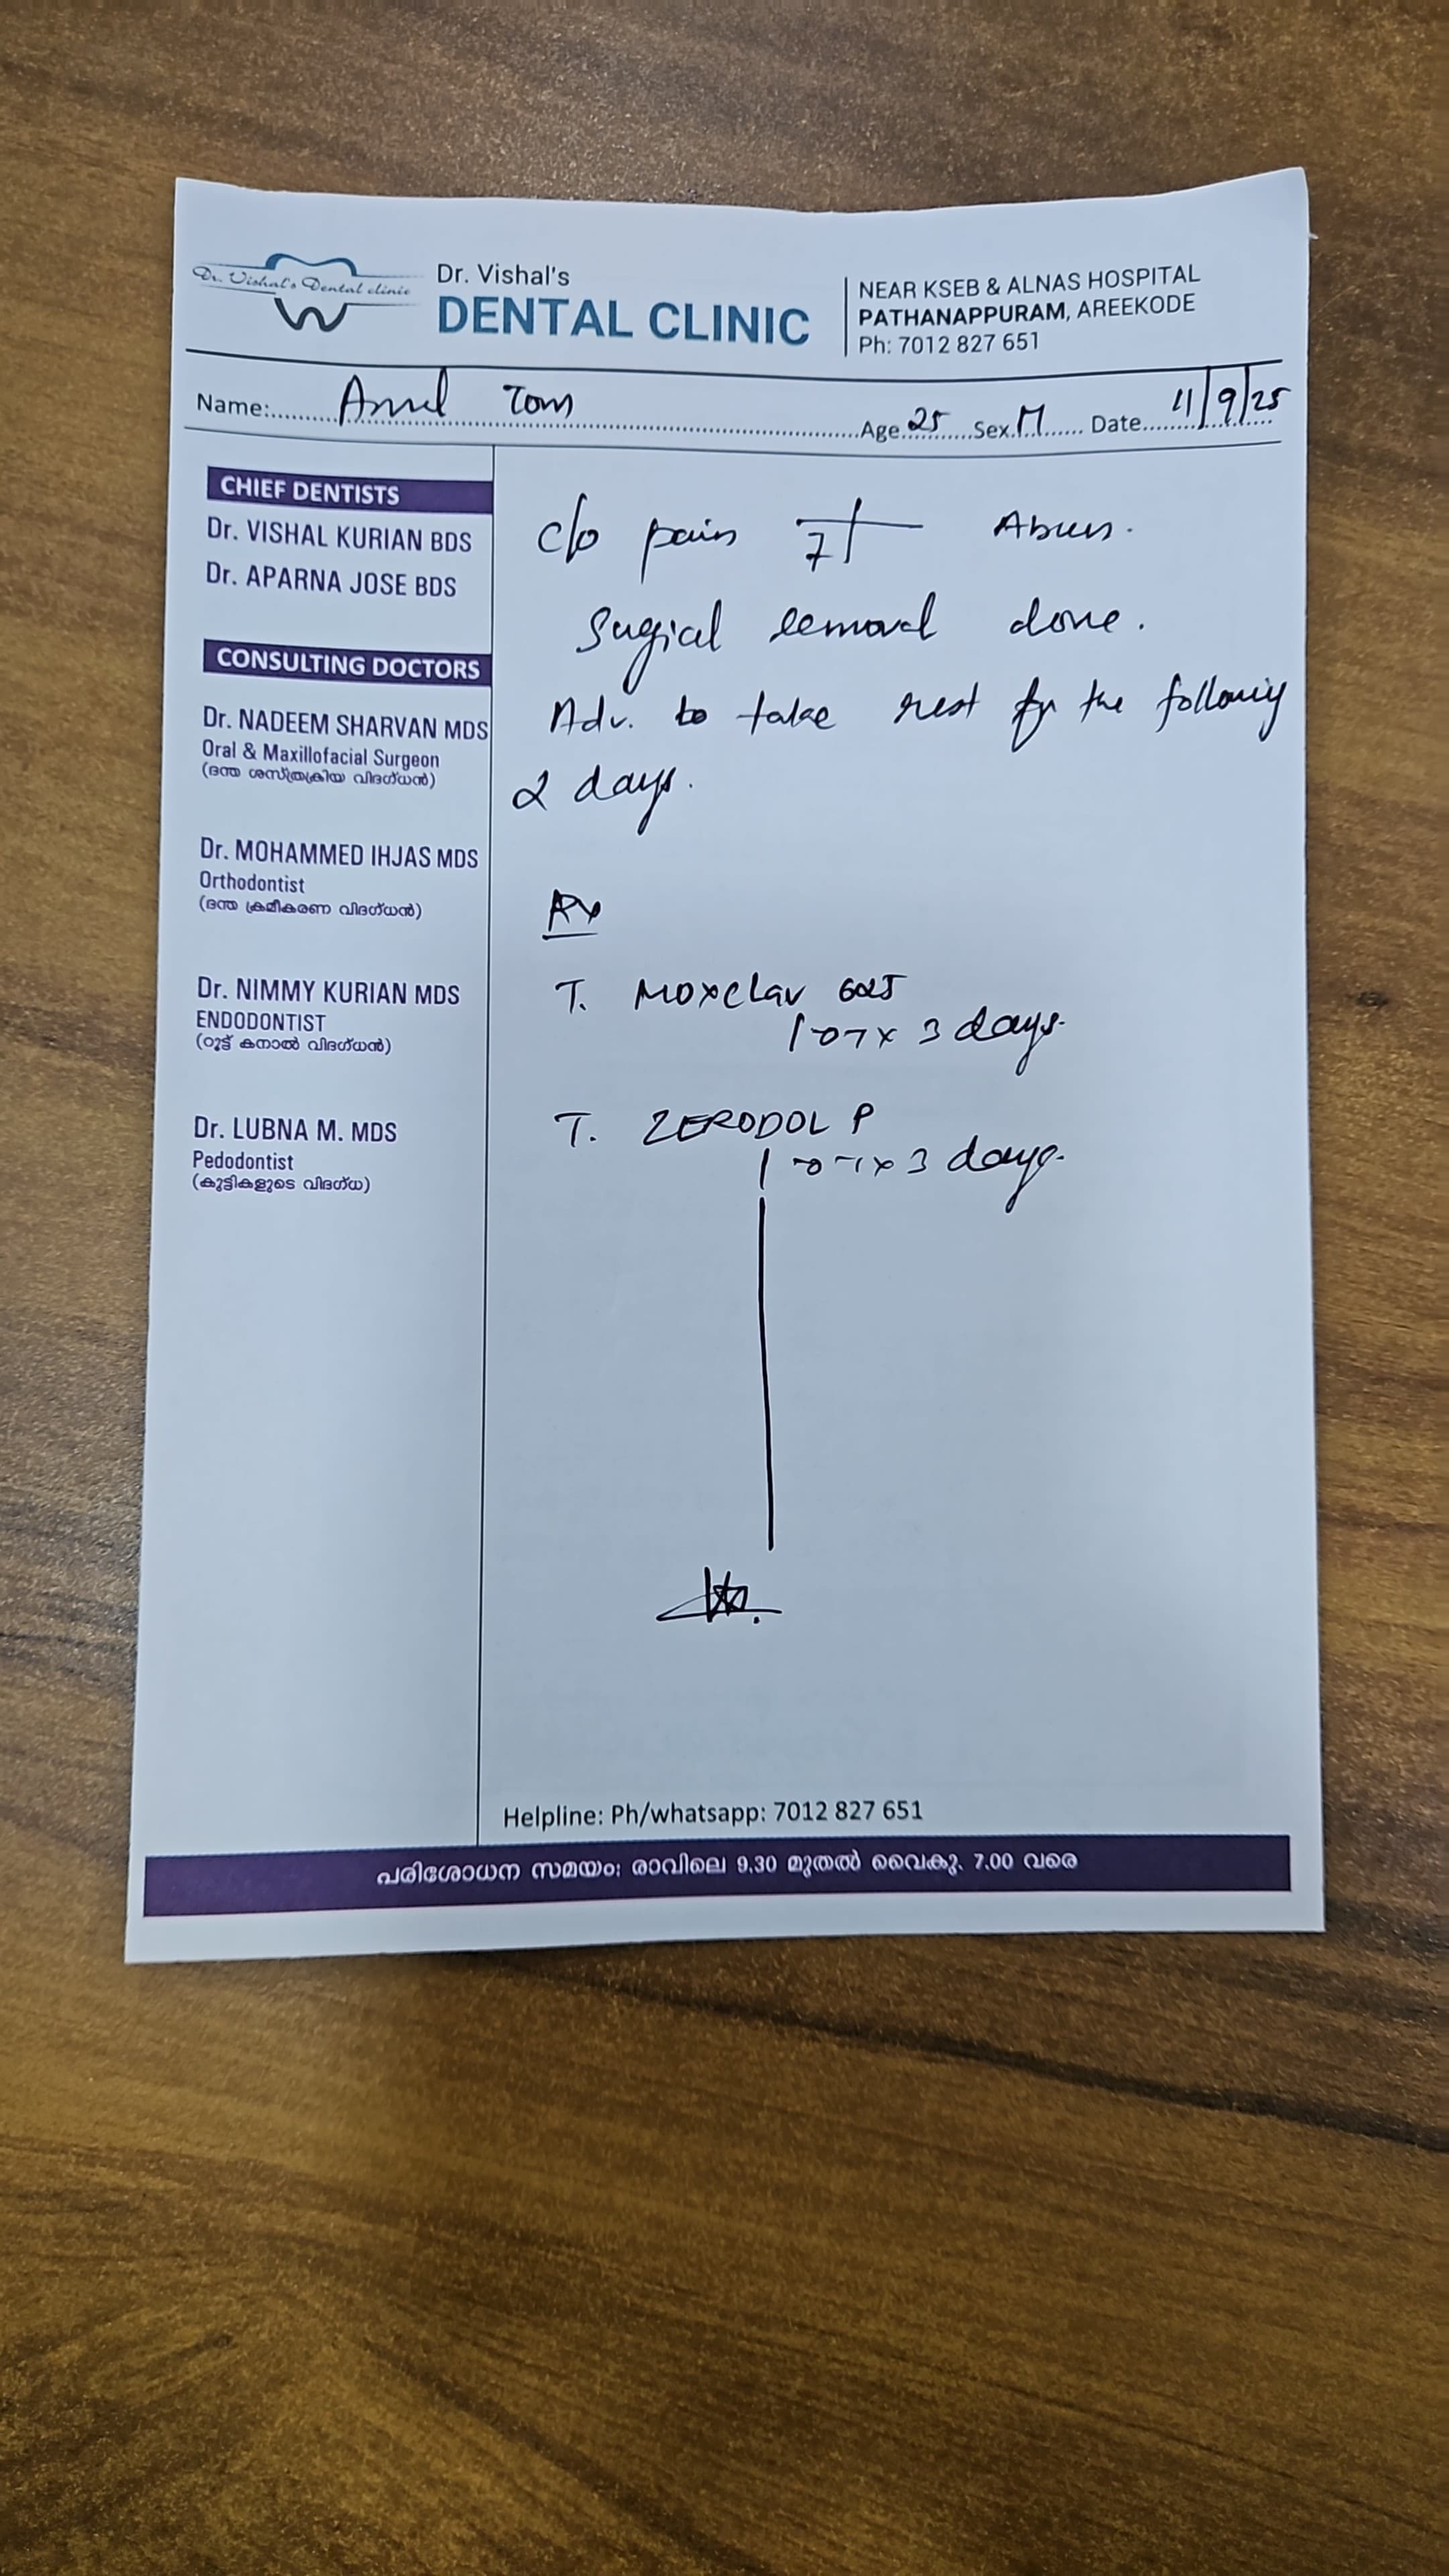 Dr. Vishal's Dental clinic
Dr. Vishal's
DENTAL CLINIC
NEAR KSEB & ALNAS HOSPITAL
PATHANAPPURAM, AREEKODE
Ph: 7012 827 651
Name: Tom Age 25 Sex M Date 11/9/25
CHIEF DENTISTS
Dr. VISHAL KURIAN BDS
Dr. APARNA JOSE BDS
CONSULTING DOCTORS
Dr. NADEEM SHARVAN MDS
Oral & Maxillofacial Surgeon
(ദന്ത ശസ്ത്രക്രിയ വിദഗ്ധൻ)
Dr. MOHAMMED IHJAS MDS
Orthodontist
(ദന്ത ക്രമീകരണ വിദഗ്ധൻ)
Dr. NIMMY KURIAN MDS
ENDODONTIST
(റൂട്ട് കനാൽ വിദഗ്ധൻ)
Dr. LUBNA M. MDS
Pedodontist
(കുട്ടികളുടെ വിദഗ്ധ)
c/o pain 7
Sugical removal done.
Adv. to take rest for the following
2 days.
Rx
T. Moxclav 625
1-0-1 x 3 days.
T. ZERODOL P
1-0-1 x 3 days.
Helpline: Ph/whatsapp: 7012 827 651
പരിശോധന സമയം: രാവിലെ 9.30 മുതൽ വൈകു. 7.00 വരെ